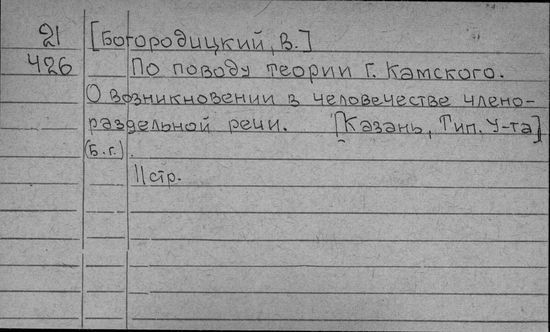 21 [Богородицкий, В.]
426 По поводу теории Г. Камского.
О возникновении в человечестве члено-
раздельной речи. [Казань, Тип. У-та]
(Б.г.).
11 стр.